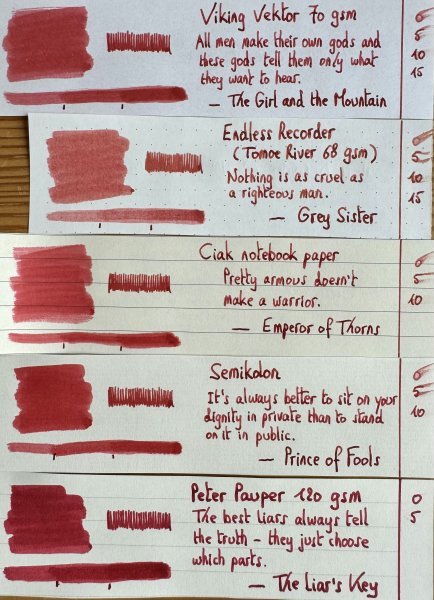 Viking Vektor 70 gsm
All men make their own gods and
these gods tell them only what
they want to hear.
— The Girl and the Mountain
0
5
10
15
Endless Recorder
(Tomoe River 68 gsm)
Nothing is as cruel as
a righteous man.
— Grey Sister
0
5
10
15
Ciak notebook paper
Pretty armous doesn't
make a warrior.
— Emperor of Thorns
0
5
10
Semikolon
It's always better to sit on your
dignity in private than to stand
on it in public.
— Prince of Fools
0
5
10
Peter Pauper 120 gsm
The best liars always tell
the truth – they just choose
which parts.
— The Liar's Key
0
5